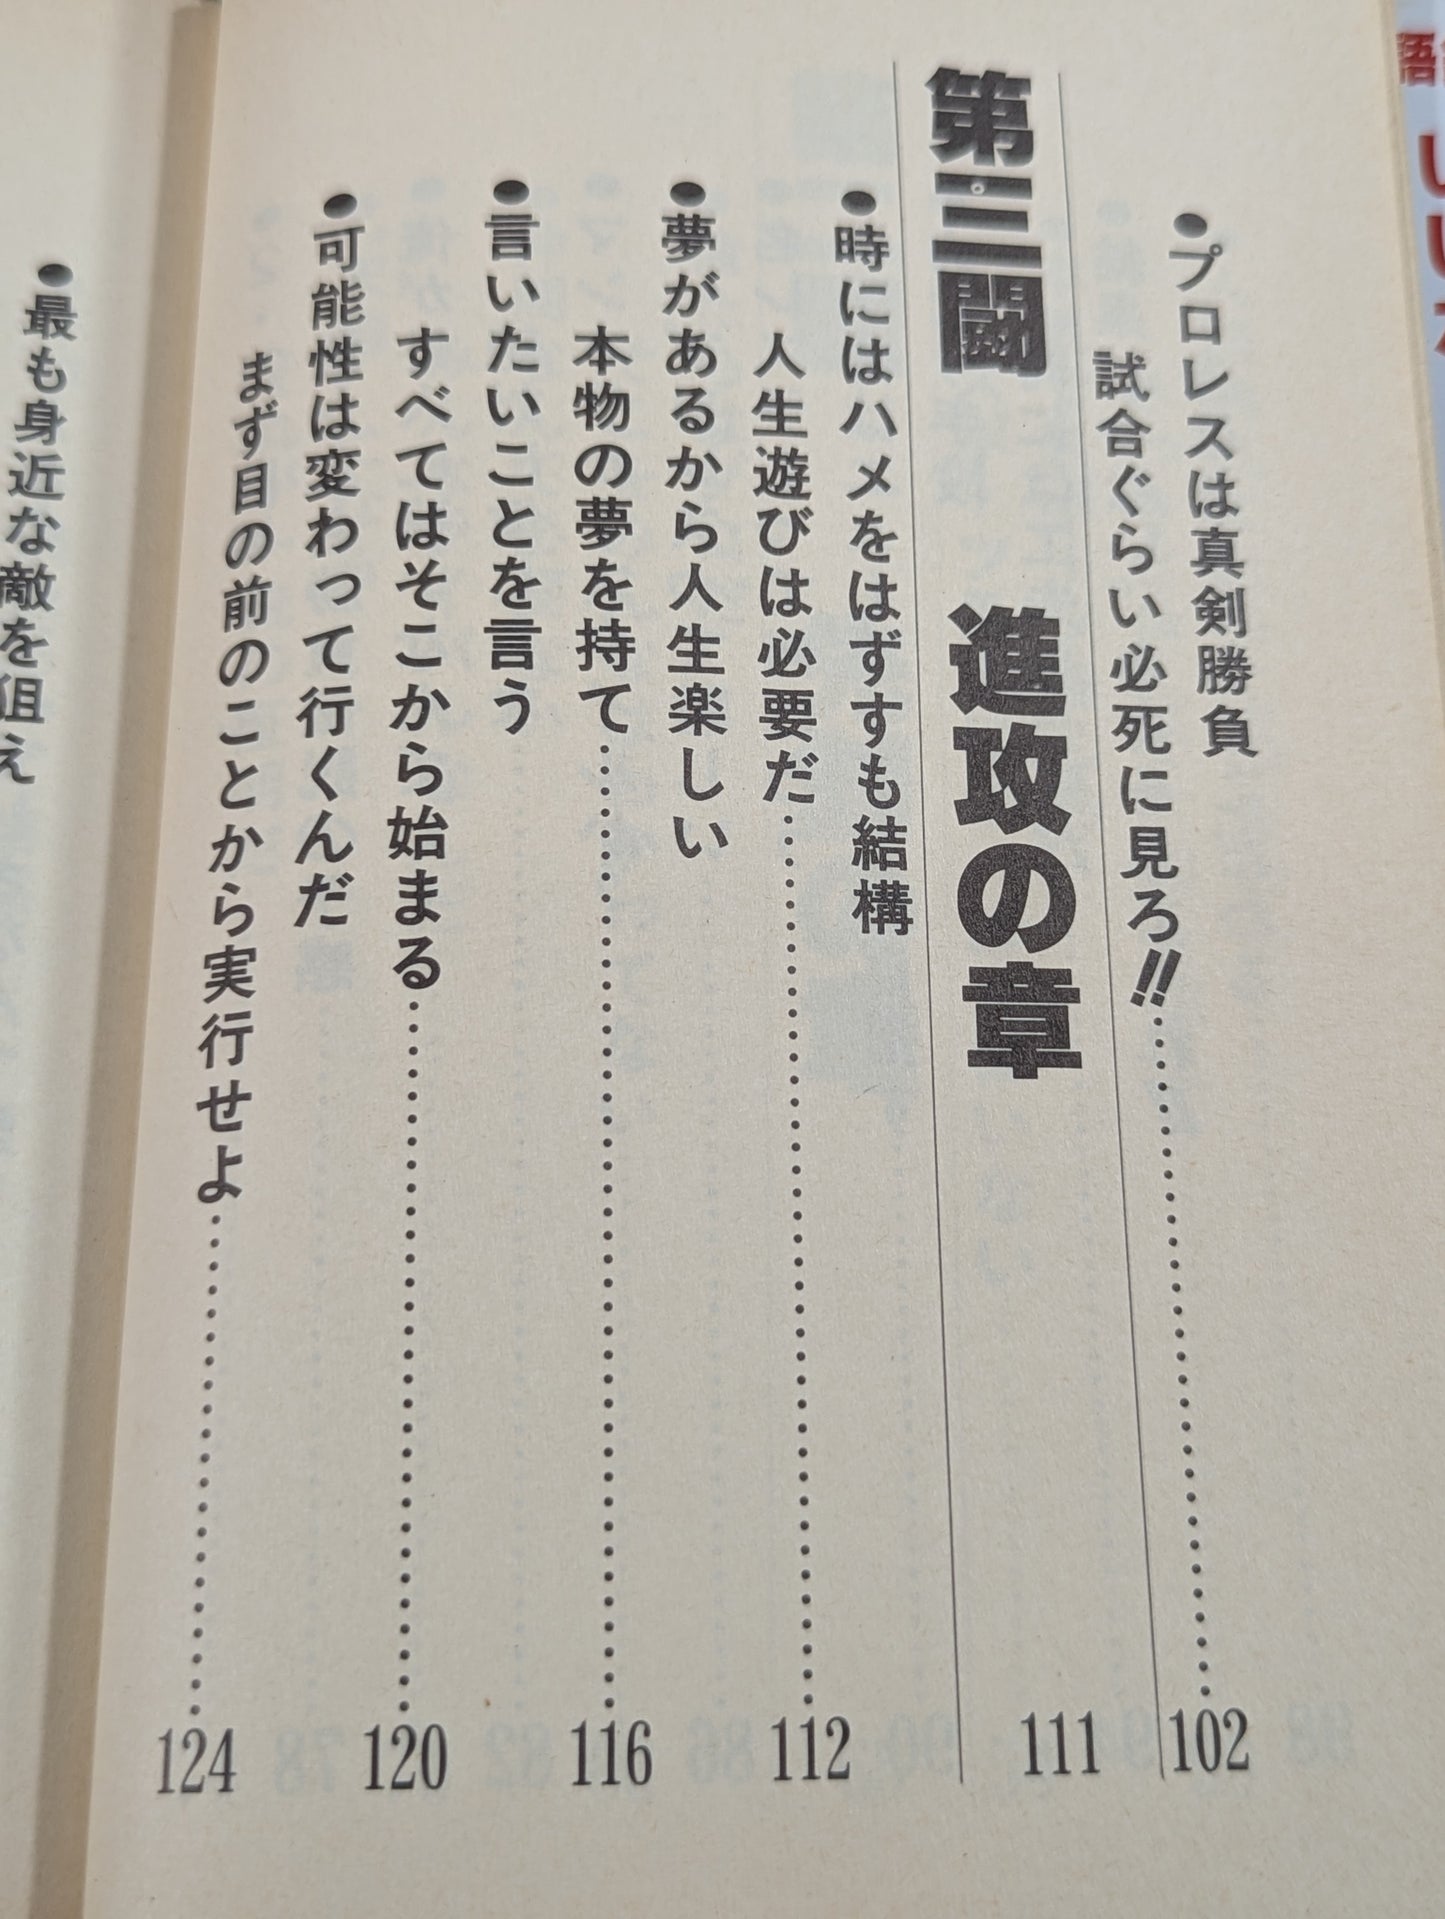 ●プロレスは真剣勝負
試合ぐらい必死に見ろ!!……102
第三闘 進攻の章 111
●時にはハメをはずすも結構
人生遊びは必要だ……112
●夢があるから人生楽しい
本物の夢を持て……116
●言いたいことを言う
すべてはそこから始まる……120
●可能性は変わって行くんだ
まず目の前のことから実行せよ……124
●最も身近な敵を狙え